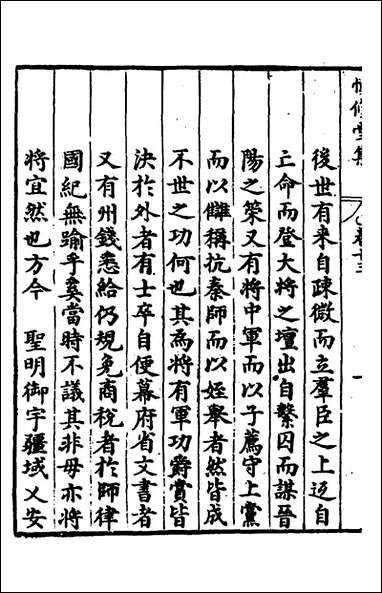 卷十三
一
後世有来自疎微而立羣臣之上迈自
亾命而登大將之壇出自繫囚而謀晉
陽之策又有將中軍而以子薦守上黨
而以讎稱抗秦師而以姪舉者然皆成
不世之功何也其為將有軍功爵賞皆
決於外者有士卒自便幕府省文書者
又有州錢悉給仍規免商稅者於師律
國紀無踰乎奚當時不議其非毋亦將
將宜然也方今　聖明御宇疆域乂安